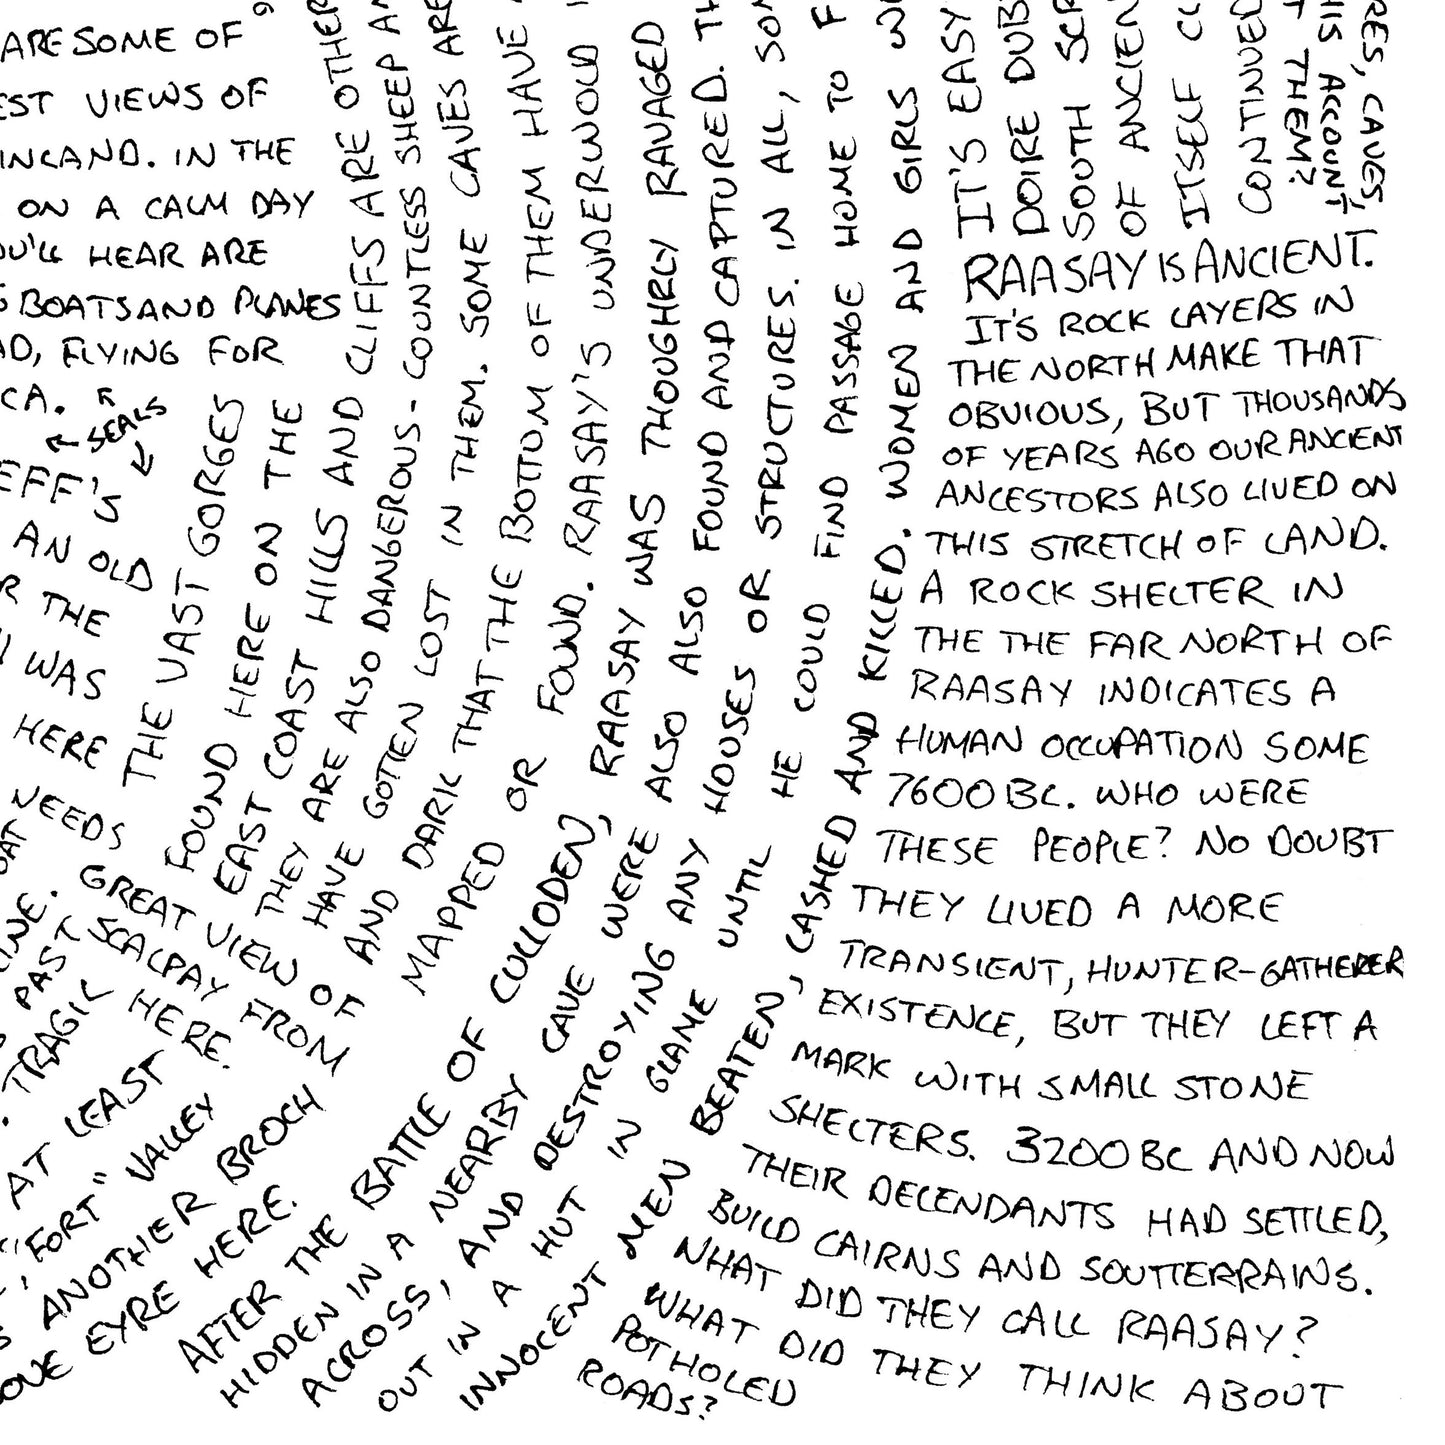 ARE SOME OF
EST VIEWS OF
INLAND. IN THE
ON A CALM DAY
OU'LL HEAR ARE
G BOATS AND PLANES
AD, FLYING FOR
CA.
SEALS
EFF'S
AN OLD
R THE
WAS
HERE
NEEDS
GREAT VIEW OF
SCALPAY FROM
INE.
PAST
TRAGIC HERE.
AT LEAST
"FORT" VALLEY
ANOTHER BROCH
OVE EYRE HERE.
THE VAST GORGES
FOUND HERE ON THE
EAST COAST HILLS AND CLIFFS ARE OTHER
THEY ARE ALSO DANGEROUS - COUNTLESS SHEEP AN
HAVE GOTTEN LOST IN THEM. SOME CAVES ARE
AND DARK THAT THE BOTTOM OF THEM HAVE
MAPPED OR FOUND. RAASAY'S UNDERWOLD
AFTER THE BATTLE OF CULLODEN, RAASAY WAS THOUGHRLY RAVAGED
HIDDEN IN A NEARBY CAVE WERE ALSO ALSO FOUND AND CAPTURED. TH
ACROSS, AND DESTROYING ANY HOUSES OR STRUCTURES. IN ALL, SOM
OUT IN A HUT IN GLAME UNTIL HE COULD FIND PASSAGE HOME TO F
INNOCENT MEN BEATEN, LASHED AND KILLED. WOMEN AND GIRLS W
IT'S EASY
DOIRE DUB
SOUTH SCR
OF ANCIEN
ITSELF CL
CONTINUED
T THEM?
HIS ACCOUNT,
RES, CAVES,
RAASAY IS ANCIENT.
IT'S ROCK LAYERS IN
THE NORTH MAKE THAT
OBVIOUS, BUT THOUSANDS
OF YEARS AGO OUR ANCIENT
ANCESTORS ALSO LIVED ON
THIS STRETCH OF LAND.
A ROCK SHELTER IN
THE THE FAR NORTH OF
RAASAY INDICATES A
HUMAN OCCUPATION SOME
7600 BC. WHO WERE
THESE PEOPLE? NO DOUBT
THEY LIVED A MORE
TRANSIENT, HUNTER-GATHERER
EXISTENCE, BUT THEY LEFT A
MARK WITH SMALL STONE
SHELTERS. 3200 BC AND NOW
THEIR DECENDANTS HAD SETTLED,
BUILD CAIRNS AND SOUTTERRAINS.
WHAT DID THEY CALL RAASAY?
WHAT DID THEY THINK ABOUT
POTHOLED
ROADS?